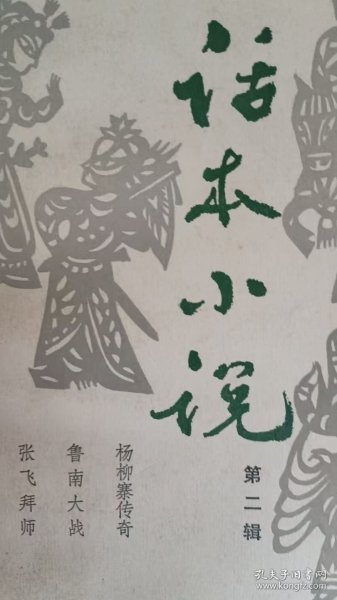 话本小说
第二辑
杨柳寨传奇
鲁南大战
张飞拜师
孔夫子旧书网